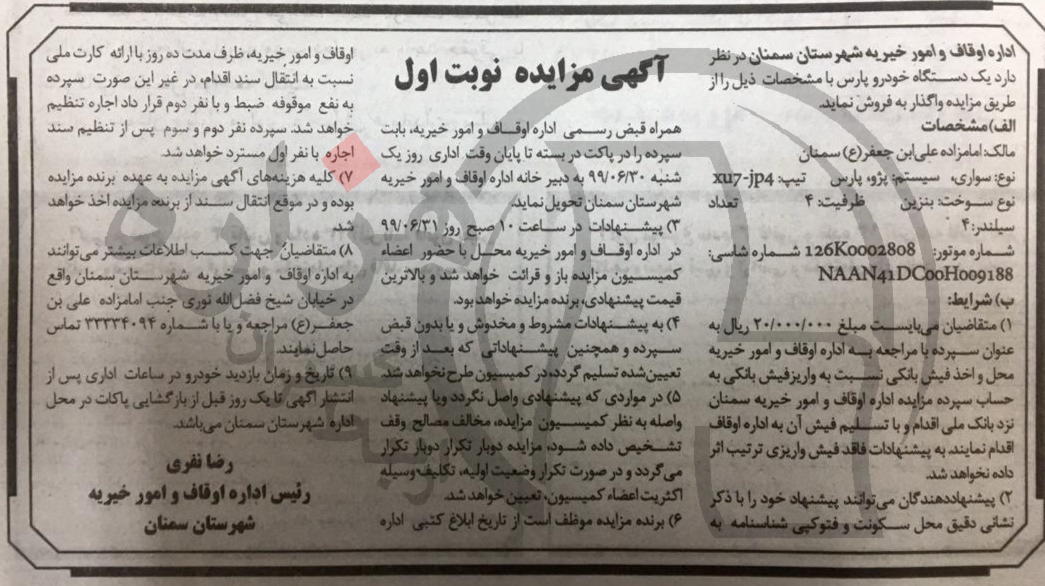 آگهی مزایده نوبت اول
اداره اوقاف و امور خیریه شهرستان سمنان در نظر
دارد یک دستگاه خودرو پارس با مشخصات ذیل را از
طریق مزایده واگذار به فروش نماید.
الف) مشخصات
مالک: امامزاده علی‌ابن جعفر(ع) سمنان
نوع: سواری، سیستم: پژو، پارس تیپ: xu7-jp4
نوع سوخت: بنزین ظرفیت: ۴ تعداد
سیلندر: ۴
شماره موتور: 126K0002808 شماره شاسی:
NAAN41DC00H009188
ب) شرایط:
۱) متقاضیان می‌بایست مبلغ ۲۰/۰۰۰/۰۰۰ ریال به
عنوان سپرده با مراجعه به اداره اوقاف و امور خیریه
محل و اخذ فیش بانکی نسبت به واریز فیش بانکی به
حساب سپرده مزایده اداره اوقاف و امور خیریه سمنان
نزد بانک ملی اقدام و با تسلیم فیش آن به اداره اوقاف
اقدام نمایند. به پیشنهادات فاقد فیش واریزی ترتیب اثر
داده نخواهد شد.
۲) پیشنهاددهندگان می‌توانند پیشنهاد خود را با ذکر
نشانی دقیق محل سکونت و فتوکپی شناسنامه به
همراه قبض رسمی اداره اوقاف و امور خیریه، بابت
سپرده را در پاکت در بسته تا پایان وقت اداری روز یک
شنبه ۹۹/۰۶/۳۰ به دبیر خانه اداره اوقاف و امور خیریه
شهرستان سمنان تحویل نماید.
۳) پیشنهادات در ساعت ۱۰ صبح روز ۹۹/۰۶/۳۱
در اداره اوقاف و امور خیریه محل با حضور اعضاء
کمیسیون مزایده باز و قرائت خواهد شد و بالاترین
قیمت پیشنهادی، برنده مزایده خواهد بود.
۴) به پیشنهادات مشروط و مخدوش و یا بدون قبض
سپرده و همچنین پیشنهاداتی که بعد از وقت
تعیین‌شده تسلیم گردد، در کمیسیون طرح نخواهد شد.
۵) در مواردی که پیشنهادی واصل نگردد و یا پیشنهاد
واصله به نظر کمیسیون مزایده، مخالف مصالح وقف
تشخیص داده شود، مزایده دوبار تکرار دوبار تکرار
می‌گردد و در صورت تکرار وضعیت اولیه، تکلیف وسیله
اکثریت اعضاء کمیسیون، تعیین خواهد شد.
۶) برنده مزایده موظف است از تاریخ ابلاغ کتبی اداره
اوقاف و امور خیریه، ظرف مدت ده روز با ارائه کارت ملی
نسبت به انتقال سند اقدام، در غیر این صورت سپرده
به نفع موقوفه ضبط و با نفر دوم قرار داد اجاره تنظیم
خواهد شد. سپرده نفر دوم و سوم پس از تنظیم سند
اجاره با نفر اول مسترد خواهد شد.
۷) کلیه هزینه‌های آگهی مزایده به عهده برنده مزایده
بوده و در موقع انتقال سند از برنده مزایده اخذ خواهد
شد.
۸) متقاضیان جهت کسب اطلاعات بیشتر می‌توانند
به اداره اوقاف و امور خیریه شهرستان سمنان واقع
در خیابان شیخ فضل‌الله نوری جنب امامزاده علی بن
جعفر(ع) مراجعه و یا با شماره ۳۳۳۳۴۰۹۴ تماس
حاصل نمایند.
۹) تاریخ و زمان بازدید خودرو در ساعات اداری پس از
انتشار آگهی تا یک روز قبل از بازگشایی پاکات در محل
اداره شهرستان سمنان می‌باشد.
رضا نفری
رئیس اداره اوقاف و امور خیریه
شهرستان سمنان